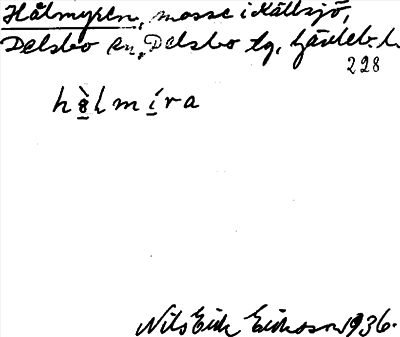 Hålmyren, mosse i Källsjö,
Delsbo sn, Delsbo tg, Gävleb. l.
228
hə̀lmíra
Nils Erik Eriksson 1936.